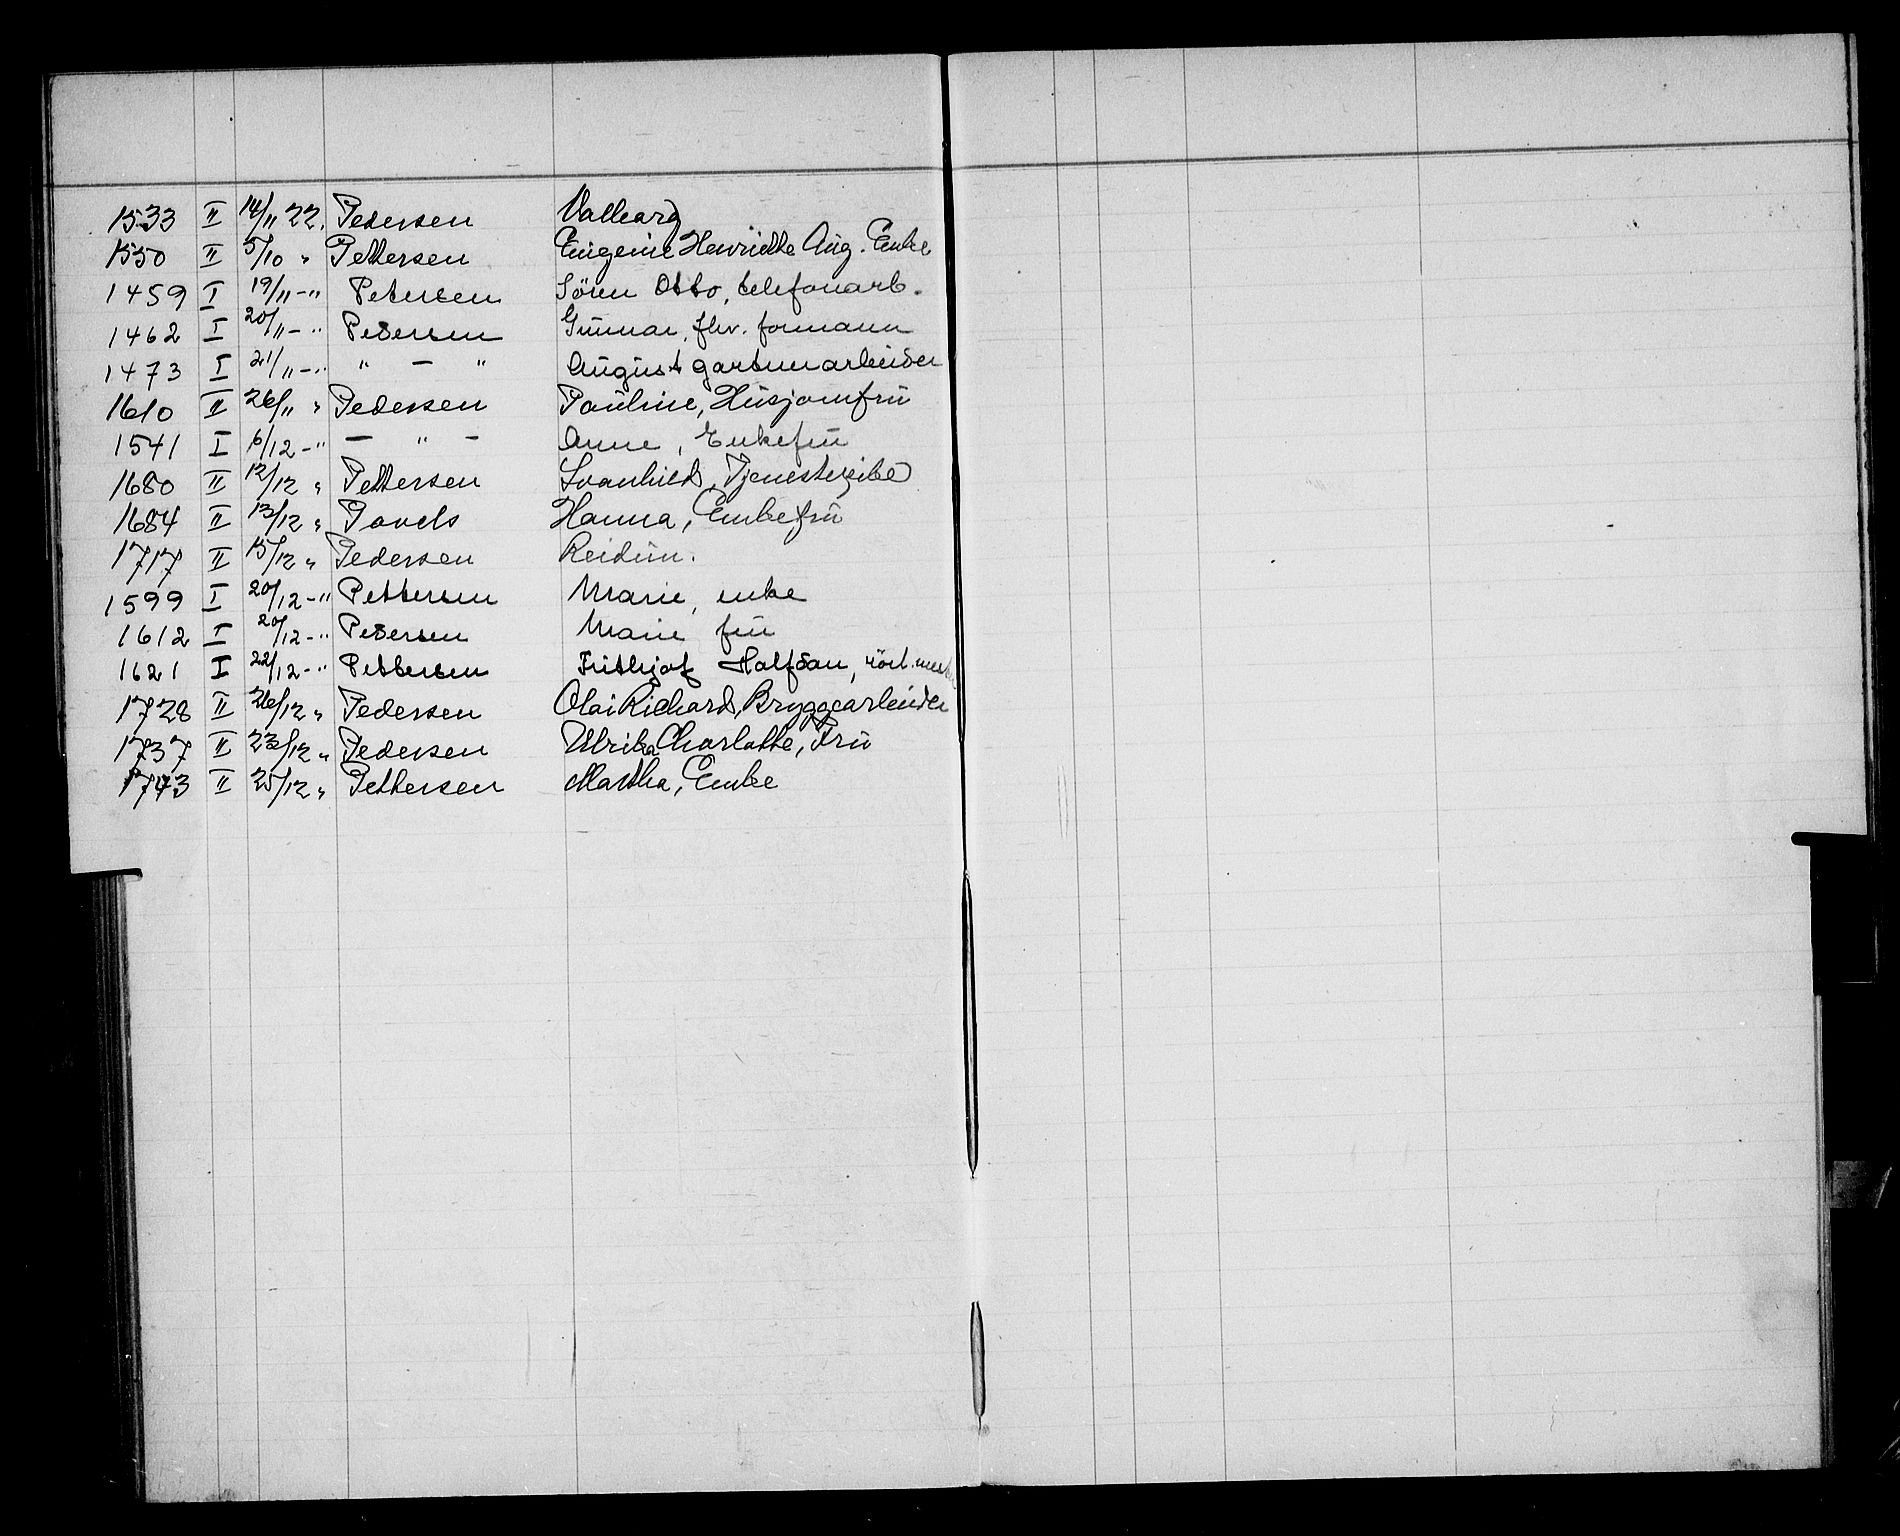 1533 II 14/11 22. Pedersen Valborg
1550 II 5/10 " Pettersen Eugenie Henriette Aug. Enke
1459 I 19/11 -" Petersen Sören Otto, telefonarb.
1462 I 20/11 -" Pedersen Gunnar, fhv. formann
1473 I 21/11 -" " — " August gartnerarbeider
1610 II 26/11 " Pedersen Pauline, Husjomfru
1541 I 6/12 -" — " — Anne, Enkefru
1680 II 12/12 " Pettersen Svanhild, Tjenestepike
1684 II 13/12 " Pavels Hanna, Enkefru
1717 II 15/12 " Pedersen Reidun.
1599 I 20/12 -" Pettersen Marie, enke
1612 I 20/12 -" Pedersen Marie fru
1621 I 22/12 -" Pettersen Frithjof Halfdan,
1728 II 26/12 " Pedersen Olai Richard, Bryggearbeider
1737 II 23/12 " Pedersen Ulrika Charlotte, Fru
1743 II 25/12 " Pettersen Martha, Enke